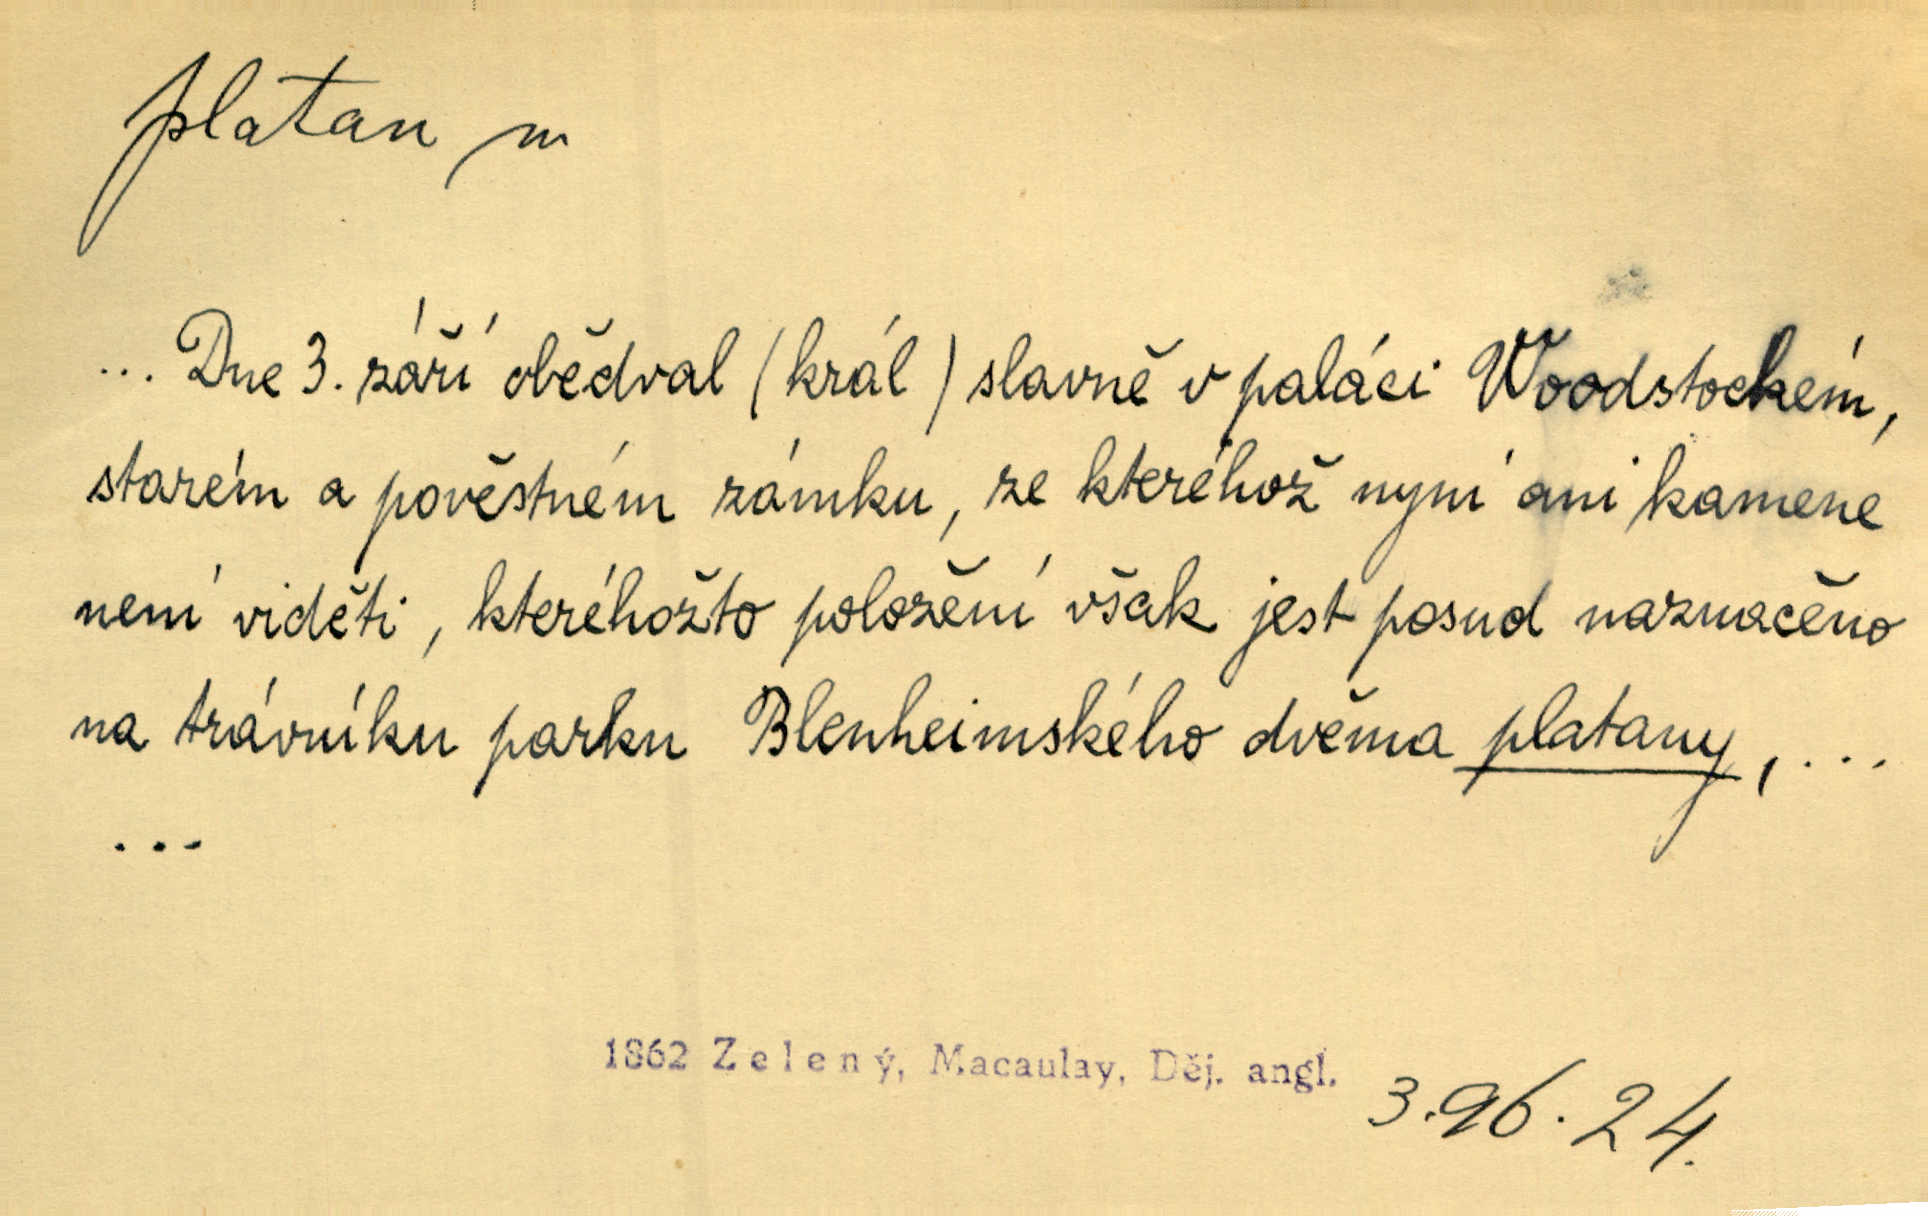 platan m
... Dne 3. září obědval (král) slavně v paláci Woodstockém,
starém a pověstném zámku, ze kteréhož nyní ani kamene
není viděti, kteréhožto položení však jest posud naznačeno
na trávníku parku Blenheimského dvěma platany, ...
...
1862 Zelený, Macaulay, Děj. angl.
3.96.24.